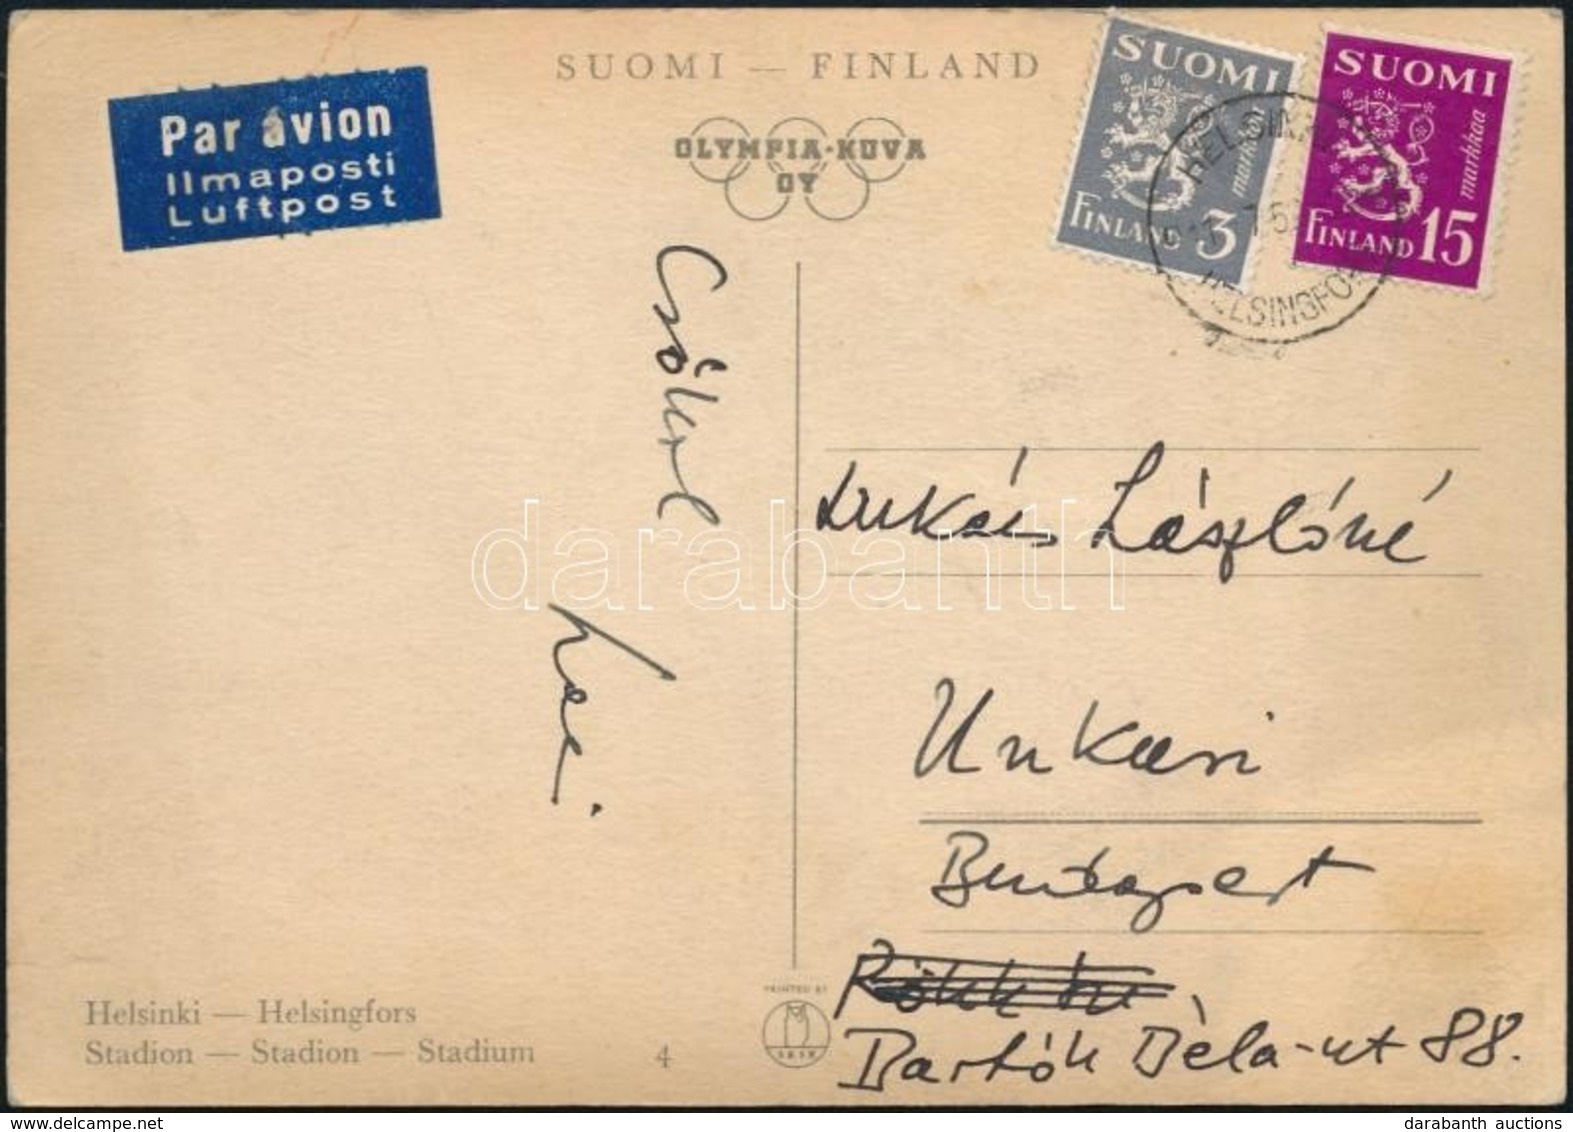 SUOMI — FINLAND
OLYMPIA-KUVA
OY
Par avion
Ilmaposti
Luftpost
SUOMI
markkaa
FINLAND 3
SUOMI
markkaa
FINLAND 15
HELSINKI
HELSINGFORS
Csókol
Lukács Lászlóné
darabanth
Unkari
Budapest
Bartók Béla-ut 88.
Helsinki — Helsingfors
Stadion — Stadion — Stadium 4
PRINTED BY
darabanth auctions